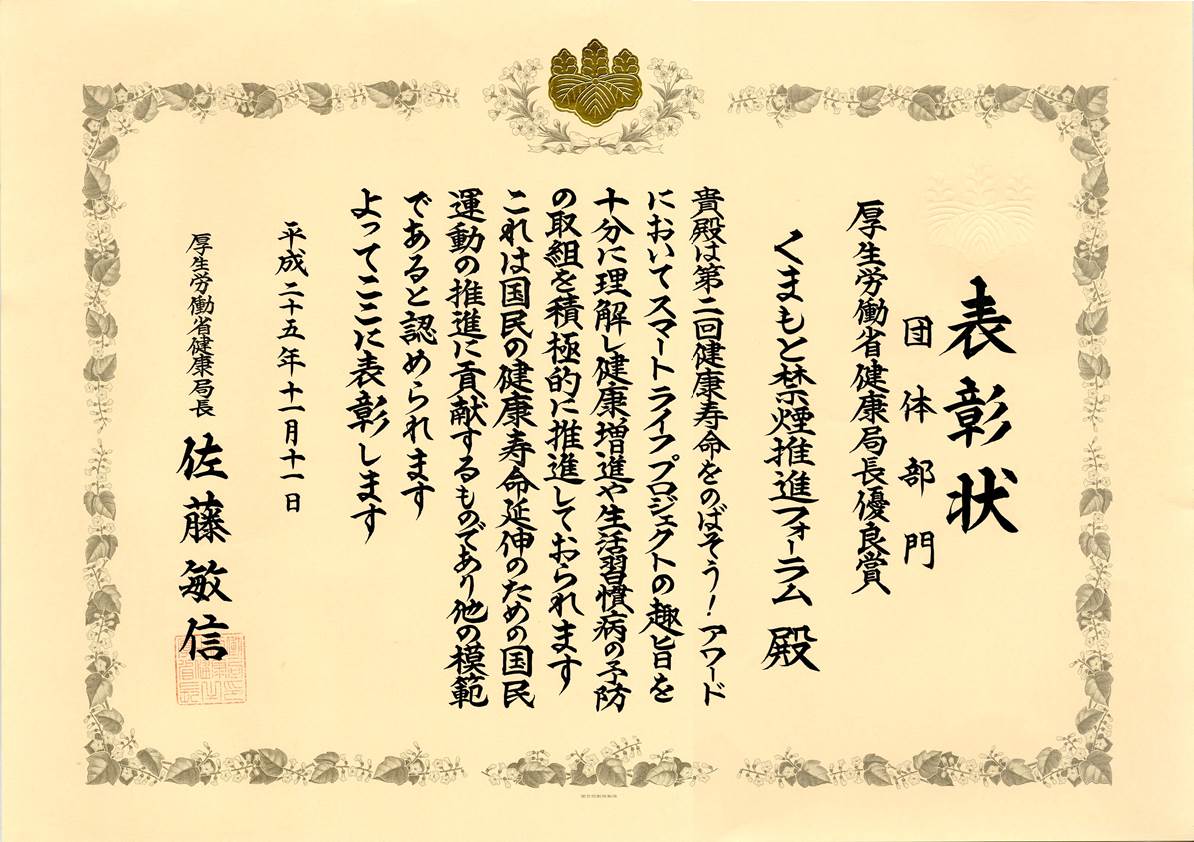 表彰状
団体部門
厚生労働省健康局長優良賞
くまもと禁煙推進フォーラム 殿
貴殿は第二回健康寿命をのばそう！アワード
においてスマートライフプロジェクトの趣旨を
十分に理解し健康増進や生活習慣病の予防
の取組を積極的に推進しておられます
これは国民の健康寿命延伸のための国民
運動の推進に貢献するものであり他の模範
であると認められます
よってここに表彰します
平成二十五年十一月十一日
厚生労働省健康局長 佐藤敏信